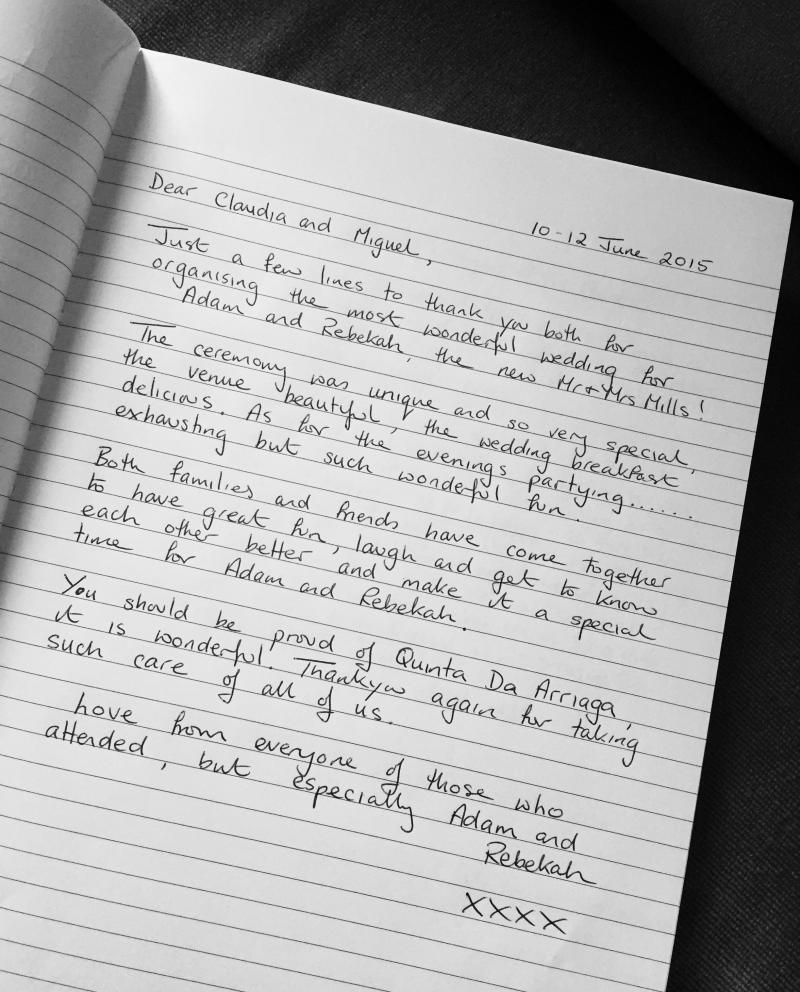 10-12 June 2015
Dear Claudia and Miguel,
Just a few lines to thank you both for
organising the most wonderful wedding for
Adam and Rebekah, the new Mr & Mrs Mills!
The ceremony was unique and so very special,
the venue beautiful, the wedding breakfast
delicious. As for the evenings partying......
exhausting but such wonderful fun.
Both families and friends have come together
to have great fun, laugh and get to know
each other better and make it a special
time for Adam and Rebekah.
You should be proud of Quinta Da Arriaga,
it is wonderful. Thankyou again for taking
such care of all of us.
Love from everyone of those who
attended, but especially Adam and
Rebekah
xxxx